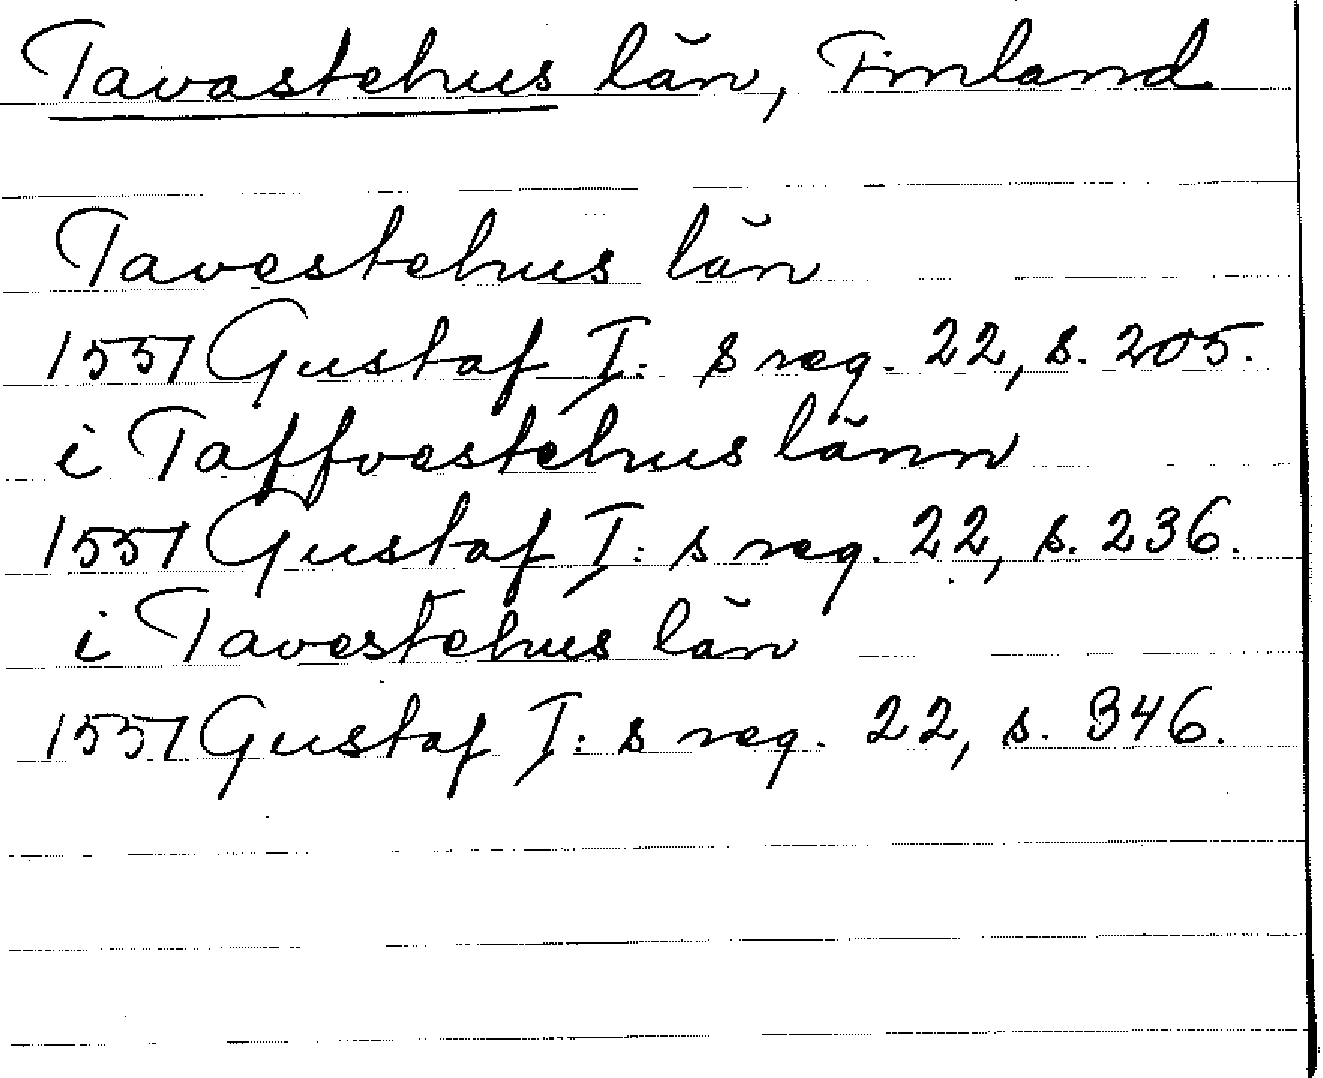 Tavastehus län, Finland
Tavestehus län
1551 Gustaf I: s reg. 22, s. 205.
i Taffvestehus länn
1551 Gustaf I: s reg. 22, s. 236.
i Tavestehus län
1551 Gustaf I: s reg. 22, s. 346.